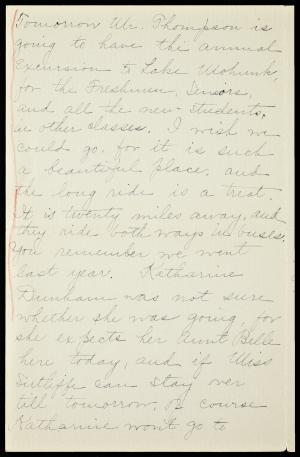 Tomorrow Mr. Thompson is
going to have the annual
excursion to Lake Mohunk,
for the Freshmen, Seniors,
and all the new students,
in other classes. I wish we
could go, for it is such
a beautiful place, and
the long ride is a treat.
It is twenty miles away, and
they ride both ways in buses.
You remember we went
last year. Katharine
Dunham was not sure
whether she was going, for
she expects her Aunt Belle
here today, and if Miss
Sutliffe can stay over
till tomorrow, of course
Katharine won't go to